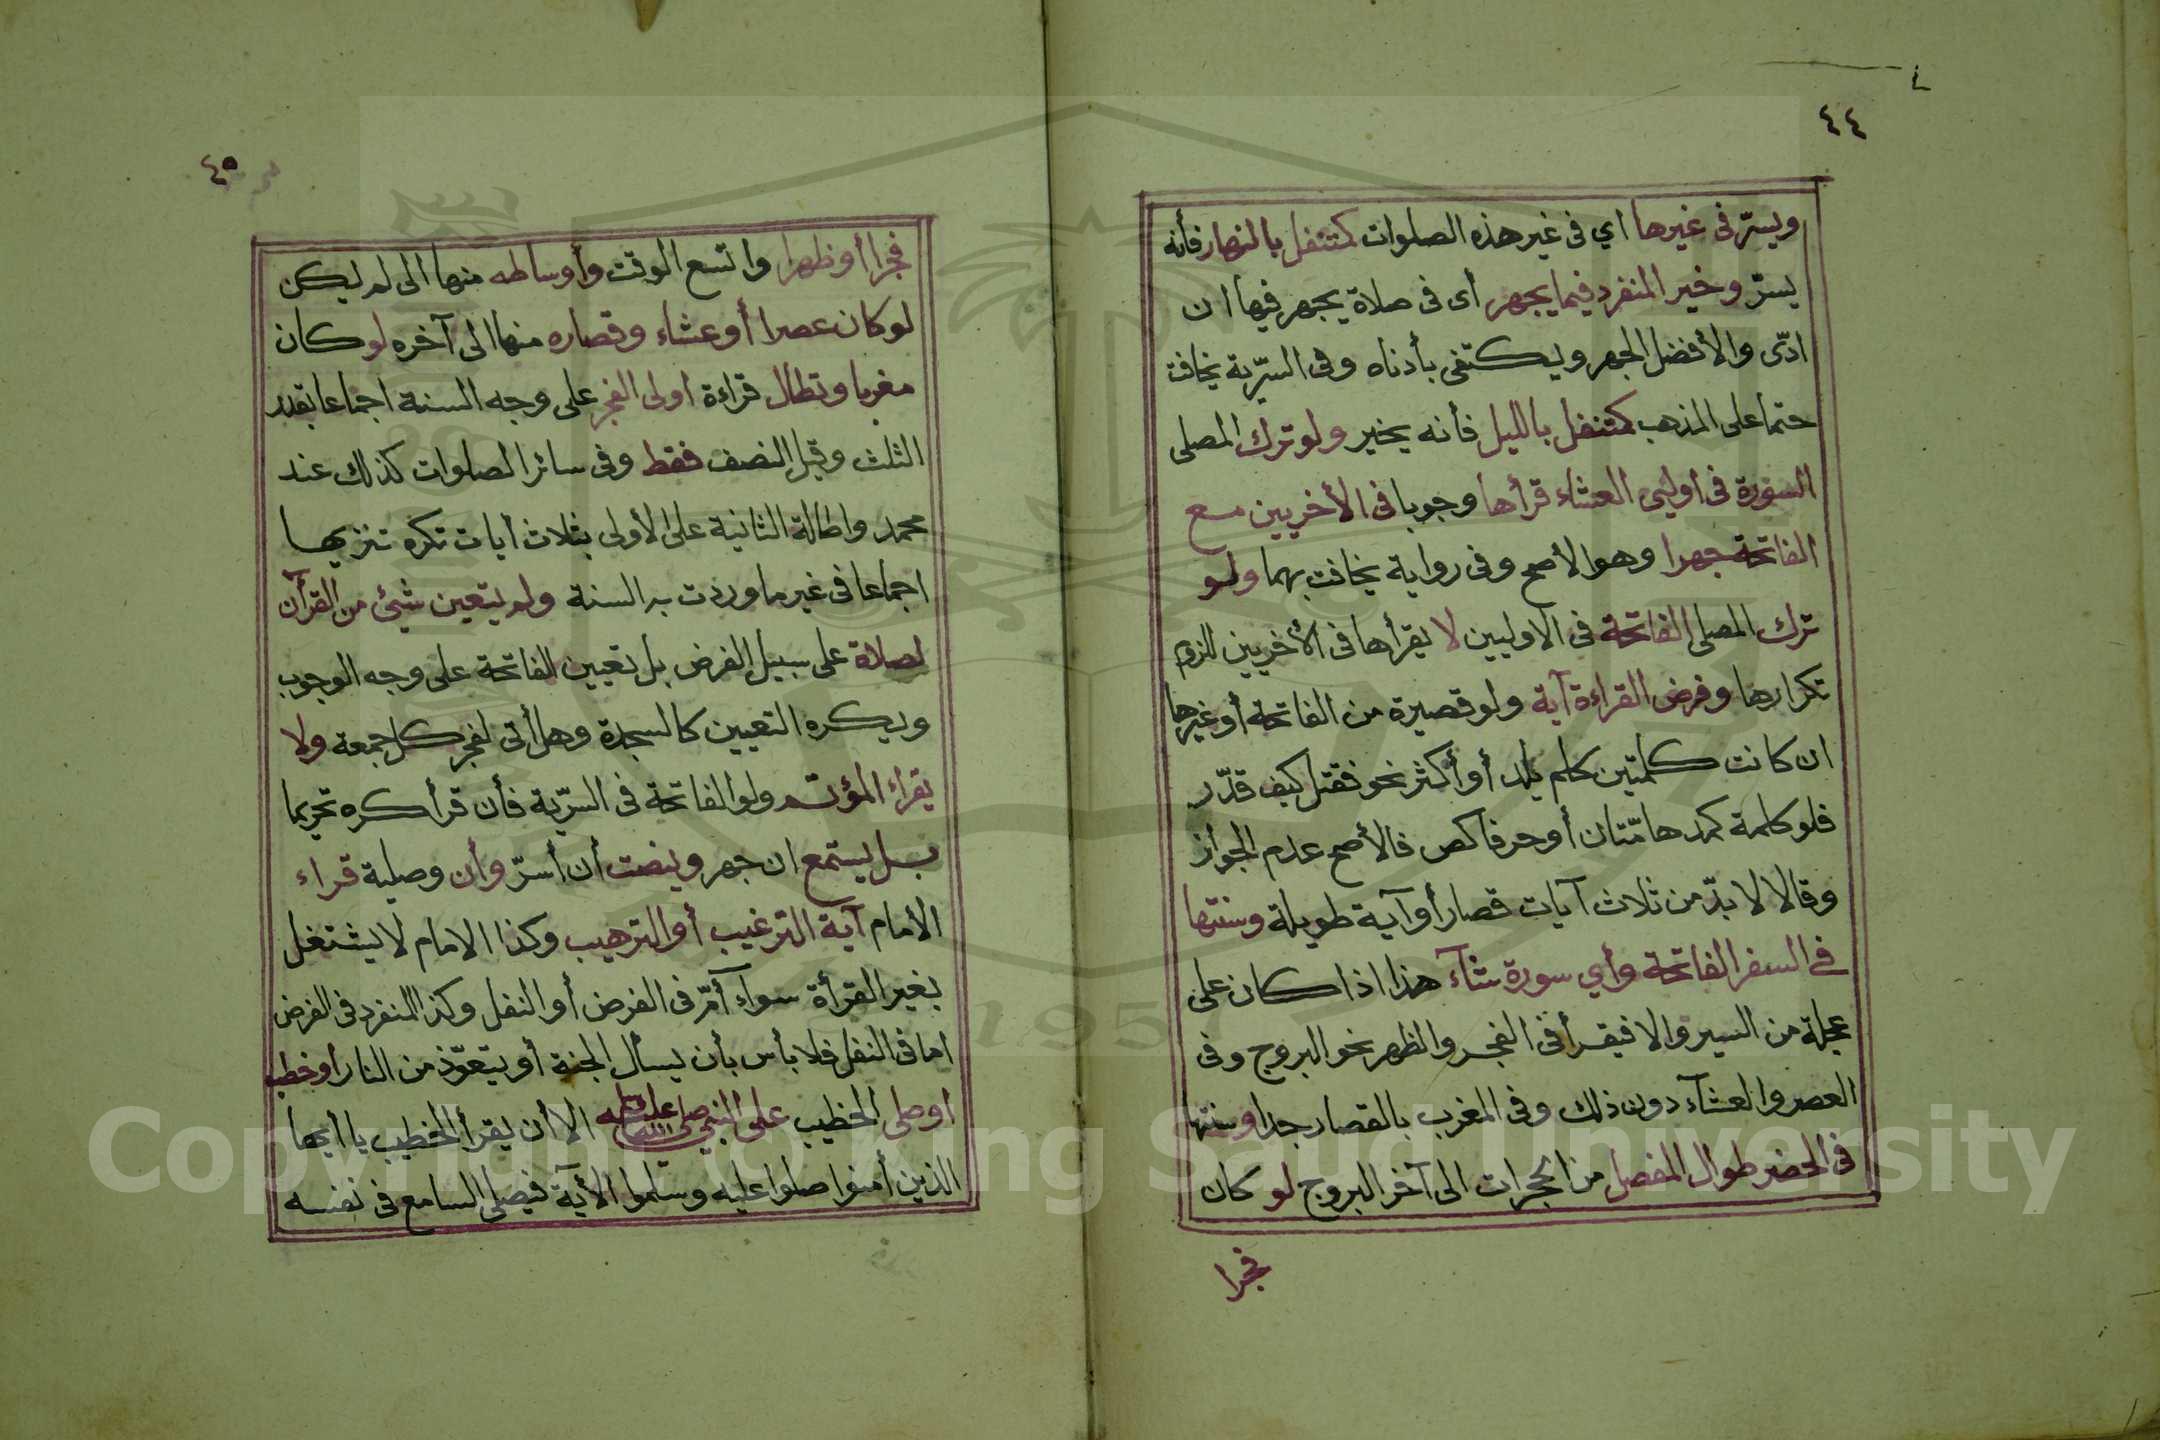 ٤٤
ويسرّ فى غيرها اي فى غير هذه الصلوات كمتنفل بالنهار فأنه
يسرّ وخير المنفرد فيما يجهر أى فى صلاة يجهر فيها ان
ادّى والأفضل الجهر ويكتفى بأدناه وفى السّرّية يخافت
حتما على المذهب كمتنفل بالليل فأنه يخير ولو ترك المصلى
السورة فى اوليي العشاء قرأها وجوبا فى الأخريين مع
الفاتحة جهرا وهو الاصح وفى رواية يخافت بهما ولو
ترك المصلى الفاتحة فى الاوليين لا يقرأها فى الأخريين للزوم
تكرارها وفرض القراءة آية ولو قصيرة من الفاتحة أو غيرها
ان كانت كلمتين كلم يلد أو أكثر نحو فقتل كيف قدّر
فلو كلمة كمدهامّتان أو حرفا كص فالأصح عدم الجواز
وقالا لا بدّ من ثلاث آيات قصار أو آية طويلة وسنتها
في السفر الفاتحة وأي سورة شآء هذا اذا كان على
عجلة من السير والا فيقرأ فى الفجر والظهر نحو البروج وفى
العصر والعشآء دون ذلك وفى المغرب بالقصار جدا وسنتها
فى الحضر طوال المفصل من الحجرات الى آخر البروج لو كان
فجرا
٤٥
فجرا أو ظهرا واتسع الوقت وأوساطه منها الى لم يكن
لو كان عصرا أو عشاء وقصاره منها الى آخره لو كان
مغربا وتطال قراءة اولى الفجر على وجه السنة اجماعا بقدر
الثلث وقيل النصف فقط وفى سائر الصلوات كذلك عند
محمد واطالة الثانية على الأولى بثلاث أيات تكره تنزيها
اجماعا فى غير ما وردت به السنة ولم يتعين شيئ من القرآن
لصلاة على سبيل الفرض بل تعيين الفاتحة على وجه الوجوب
ويكره التعيين كالسجدة وهل أتى لفجر كل جمعة ولا
يقراء المؤتم ولو الفاتحة فى السّرّية فأن قرأ كره تحريما
بل يستمع ان جهر وينصت أن أسرّ وأن وصلية قراء
الأمام آية الترغيب أو الترهيب وكذا الامام لا يشتغل
بغير القرأة سواء أمّ فى الفرض أو النفل وكذا المنفرد فى الفرض
اما فى النفل فلا بأس بأن يسأل الجنة أو يتعوّذ من النار أو خطب
او صلى الخطيب على النبي صلى الله عليه وسلم الا أن يقرأ الخطيب يا أيها
الذين أمنوا صلوا عليه وسلموا الأية فيصلى السامع فى نفسه
Copyright © King Saud University
1957